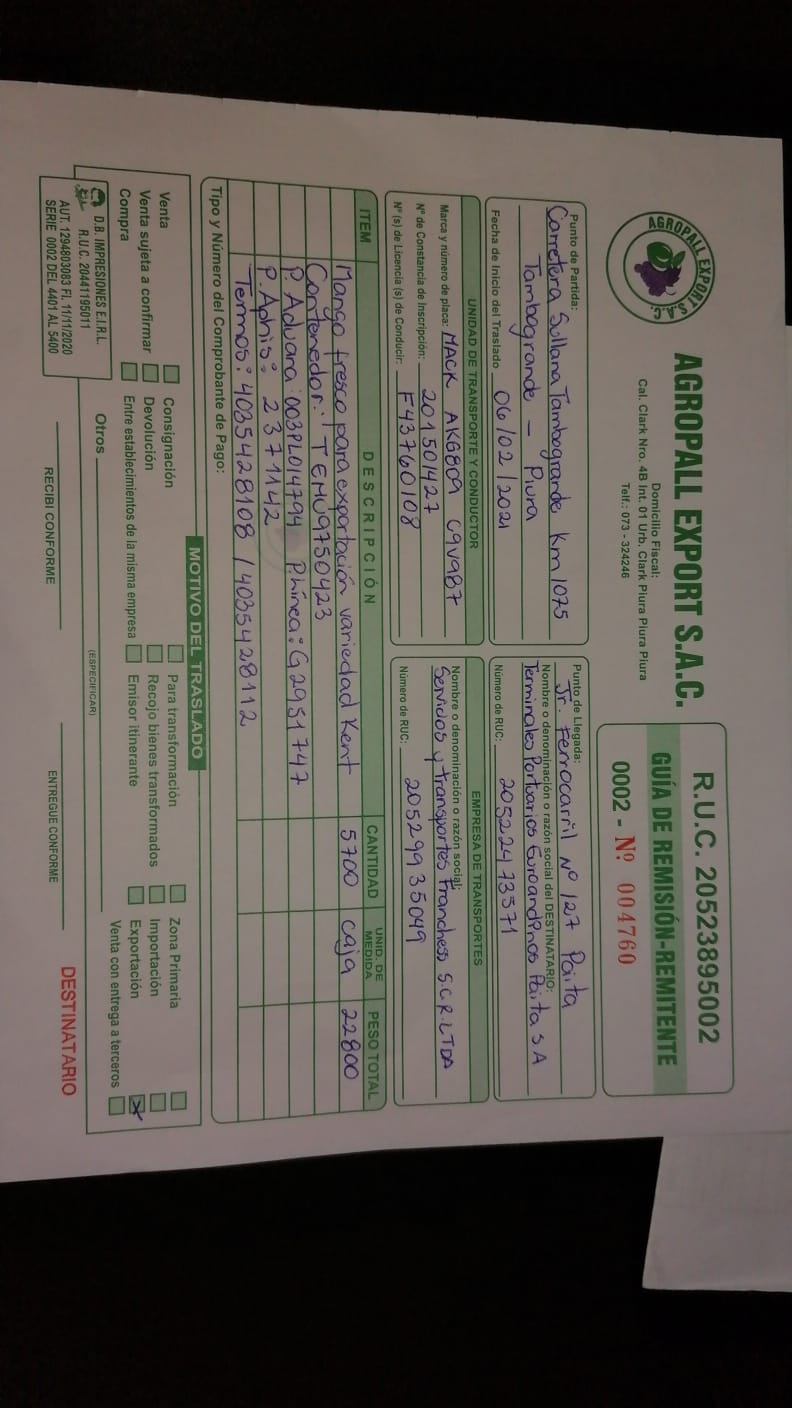 AGROPALL EXPORT S.A.C.
AGROPALL EXPORT S.A.C.
Domicilio Fiscal:
Cal. Clark Nro. 4B Int. 01 Urb. Clark Piura Piura Piura
Telf.: 073 - 324246
R.U.C. 20523895002
GUÍA DE REMISIÓN-REMITENTE
0002 - Nº 004760
Punto de Partida:
Carretera Sullana Tambogrande Km 1075
Tambogrande - Piura
Fecha de Inicio del Traslado 06/02/2021
Punto de Llegada:
Jr. Ferrocarril Nº 127 Paita
Nombre o denominación o razón social del DESTINATARIO:
Terminales Portuarios Euroandinos Paita S A
Número de RUC: 20522473571
UNIDAD DE TRANSPORTE Y CONDUCTOR
Marca y número de placa: MACK AKG809 C9V987
Nº de Constancia de Inscripción: 201501427
Nº (s) de Licencia (s) de Conducir: F43760108
EMPRESA DE TRANSPORTES
Nombre o denominación o razón social:
Servicios y transportes Franchess S.C.R.LTDA
Número de RUC: 20529935049
ITEM DESCRIPCIÓN CANTIDAD UNID. DE MEDIDA PESO TOTAL
Mango fresco para exportación variedad Kent 5700 caja 22800
Contenedor: TEMU9750423
P. Aduana: 003PL014794 P.Línea: G2951747
P. Aphis: 2371142
Termos: 4035428108 / 4035428112
Tipo y Número del Comprobante de Pago:
MOTIVO DEL TRASLADO
Venta Consignación Para transformación Zona Primaria
Venta sujeta a confirmar Devolución Recojo bienes transformados Importación
Compra Entre establecimientos de la misma empresa Emisor itinerante Exportación X
Otros Venta con entrega a terceros
(ESPECIFICAR)
D.B. IMPRESIONES E.I.R.L.
R.U.C. 20441195011
AUT. 1294803083 FI. 11/11/2020
SERIE 0002 DEL 4401 AL 5400
RECIBI CONFORME
ENTREGUE CONFORME
DESTINATARIO